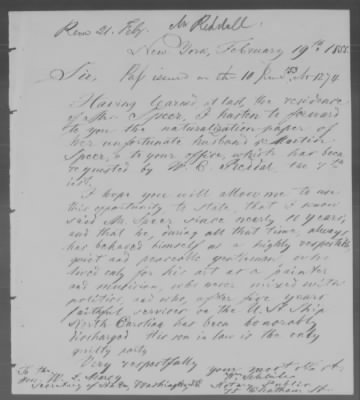 Rem 21. Feby. Mr Riddall.
New York, February 19th 1855.
Sir, Pass issued on the 10 June '53 No 1274
Having learned at last, the residence
of Mrs Speer, I hasten to forward
to you the naturalization paper of
her unfortunate husband
Speer, to your office, which has been
requested by W. C. on 7th
inst.
I hope you will allow me to use
this opportunity to state, that I know
said Mr. Speer since nearly 10 years,
and that he, during all that time, always
has behaved himself as a highly respectable
quiet and peaceable gentleman who
lived only for his art as a painter
and musician, who never mixed with
politics, and who, after five years
faithful services on the U. St Ship
North Carolina has been honorably
discharged. His son in law is the only
guilty party.
Very respectfully
your most obt st.
To the
Hon. W. L. Marcy
Secretary of State, Washington
Wm
Notary Public
75 Chatham St.